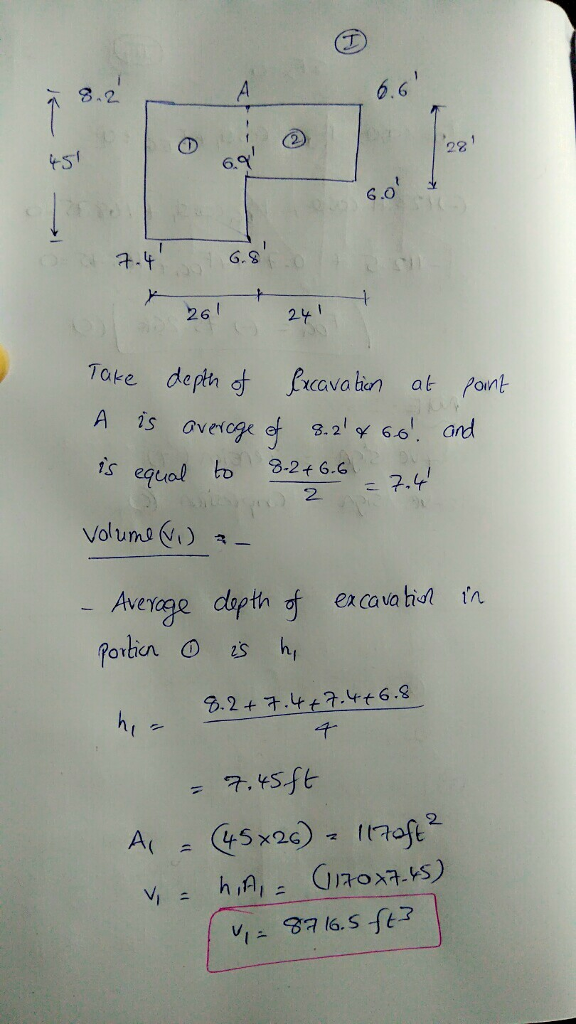 I
8.2'
A
6.6'
45'
1
2
28'
6.9'
6.0'
7.4'
6.8'
26'
24'
Take depth of Excavation at point
A is average of 8.2' & 6.6'. and
is equal to (8.2+6.6)/2 = 7.4'
Volume (V₁) =-
- Average depth of excavation in
portion ① is h₁
h₁ = (8.2+7.4+7.4+6.8)/4
= 7.45ft
A₁ = (45×26) = 1170ft²
V₁ = h₁A₁ = (1170×7.45)
V₁ = 8716.5 ft³